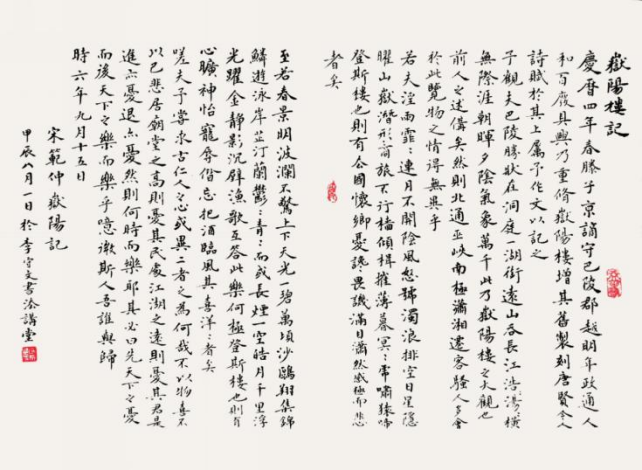 嶽陽樓記
慶曆四年春滕子京謫守巴陵郡越明年政通人
和百廢具興乃重脩嶽陽樓增其舊製刻唐賢今人
詩賦於其上屬予作文以記之
予觀夫巴陵勝狀在洞庭一湖銜遠山吞長江浩〻湯〻橫
無際涯朝暉夕陰氣象萬千此乃嶽陽樓之大觀也
前人之述備矣然則北通巫峽南極瀟湘遷客騷人多會
於此覽物之情得無異乎
若夫淫雨霏〻連月不開陰風怒號濁浪排空日星隱
曜山嶽潛形商旅不行檣傾楫摧薄暮冥〻虎嘯猿啼
登斯樓也則有去國懷鄉憂讒畏譏滿目蕭然感極而悲
者矣
至若春景明波瀾不驚上下天光一碧萬頃沙鷗翔集錦
鱗遊泳岸芷汀蘭鬱〻青〻而或長煙一空皓月千里浮
光躍金靜影沉璧漁歌互答此樂何極登斯樓也則有
心曠神怡寵辱偕忘把酒臨風其喜洋〻者矣
嗟夫予嘗求古仁人之心或異二者之為何哉不以物喜不
以己悲居廟堂之高則憂其民處江湖之遠則憂其君是
進亦憂退亦憂然則何時而樂耶其必曰先天下之憂
而後天下之樂而樂乎噫微斯人吾誰與歸
時六年九月十五日
宋範仲 嶽陽記
甲辰八月一日於李守文書法講堂